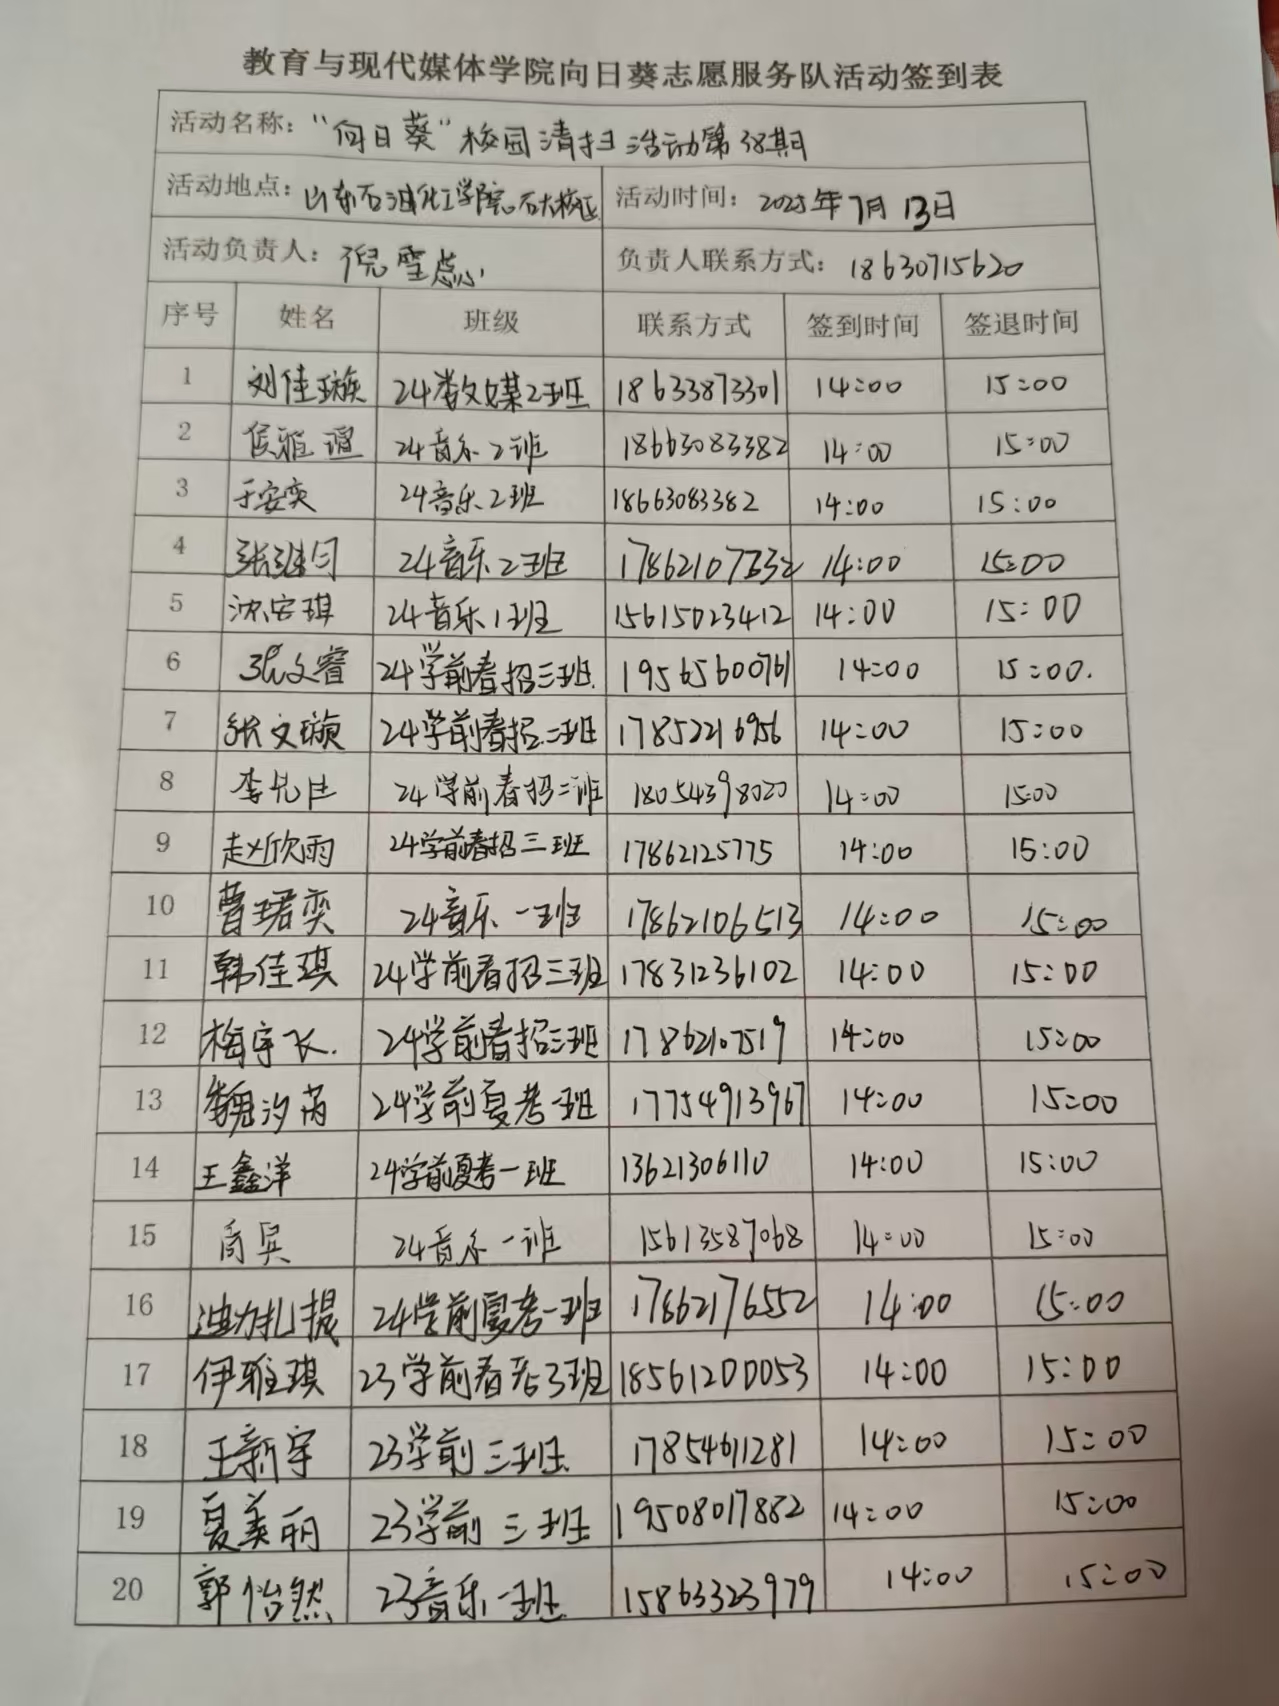 教育与现代媒体学院向日葵志愿服务队活动签到表
活动名称：“向日葵”校园清扫活动第38期
活动地点：山东石油化工学院石大校区 活动时间：2025年7月13日
活动负责人：倪雪蕊 负责人联系方式：18630715620
序号 姓名 班级 联系方式 签到时间 签退时间
1 刘佳璇 24数媒2班 18633873301 14:00 15:00
2 侯雅 24音乐2班 18663083382 14:00 15:00
3 于安奕 24音乐2班 18663083382 14:00 15:00
4 张继月 24音乐2班 14:00 15:00
5 沈安琪 24音乐1班 15615023412 14:00 15:00
6 张文睿 24学前春招三班 19565600761 14:00 15:00.
7 张文璇 24学前春招二班 17852216956 14:00 15:00
8 李 24学前春招二班 18054398020 14:00 15:00
9 赵欣雨 24学前春招三班 17862125775 14:00 15:00
10 曹珺奕 24音乐一班 17862106513 14:00 15:00
11 韩佳琪 24学前春招三班 17831236102 14:00 15:00
12 梅宇飞. 24学前春招三班 17862107519 14:00 15:00
13 魏汐芮 24学前夏考一班 17754913967 14:00 15:00
14 王鑫洋 24学前夏考一班 13621306110 14:00 15:00
15 24音乐一班 15613587068 14:00 15:00
16 迪力扎提 24学前夏考一班 17862176552 14:00 15:00
17 伊雅琪 23学前春考3班 18561200053 14:00 15:00
18 王新宇 23学前三班 17854611281 14:00 15:00
19 夏美丽 23学前三班 19508017882 14:00 15:00
20 郭怡然 23音乐一班 15863323979 14:00 15:00